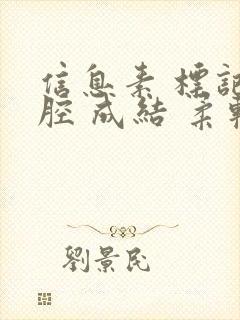 信息素 標記
腔 成結 柔軟
劉景民